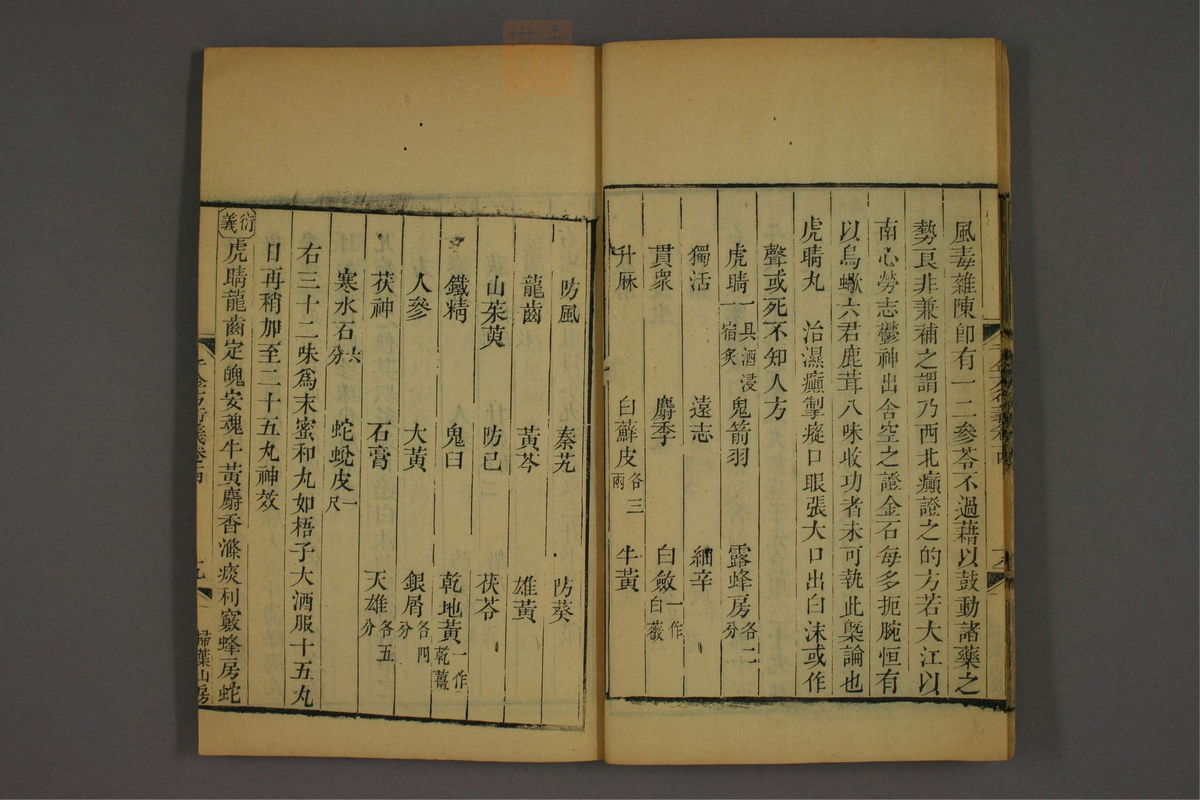 風毒雜陳卽有一二參苓不過藉以鼓動諸藥之
勢良非兼補之謂乃西北癲證之的方若大江以
南心勞志鬱神出舍空之證金石每多扼腕恒有
以烏蠍六君鹿茸八味收功者未可執此槩論也
虎睛丸 治濕癲掣瘲口眼張大口出白沫或作
聲或死不知人方
虎睛一具酒浸宿炙 鬼箭羽 露蜂房各二分
獨活 遠志 細辛
貫衆 麝香 白斂一作白薇
升麻 白蘚皮各三兩 牛黃
防風 秦艽 防葵
龍齒 黃芩 雄黃
山茱萸 防己 茯苓
鐵精 鬼臼 乾地黃一作乾薑
人參 大黃 銀屑各四分
茯神 石膏 天雄各五分
寒水石六分 蛇蛻皮一尺
右三十二味爲末蜜和丸如梧子大酒服十五丸
日再稍加至二十五丸神效
衍義
虎睛龍齒定魄安魂牛黃麝香滌痰利竅蜂房蛇
掃葉山房